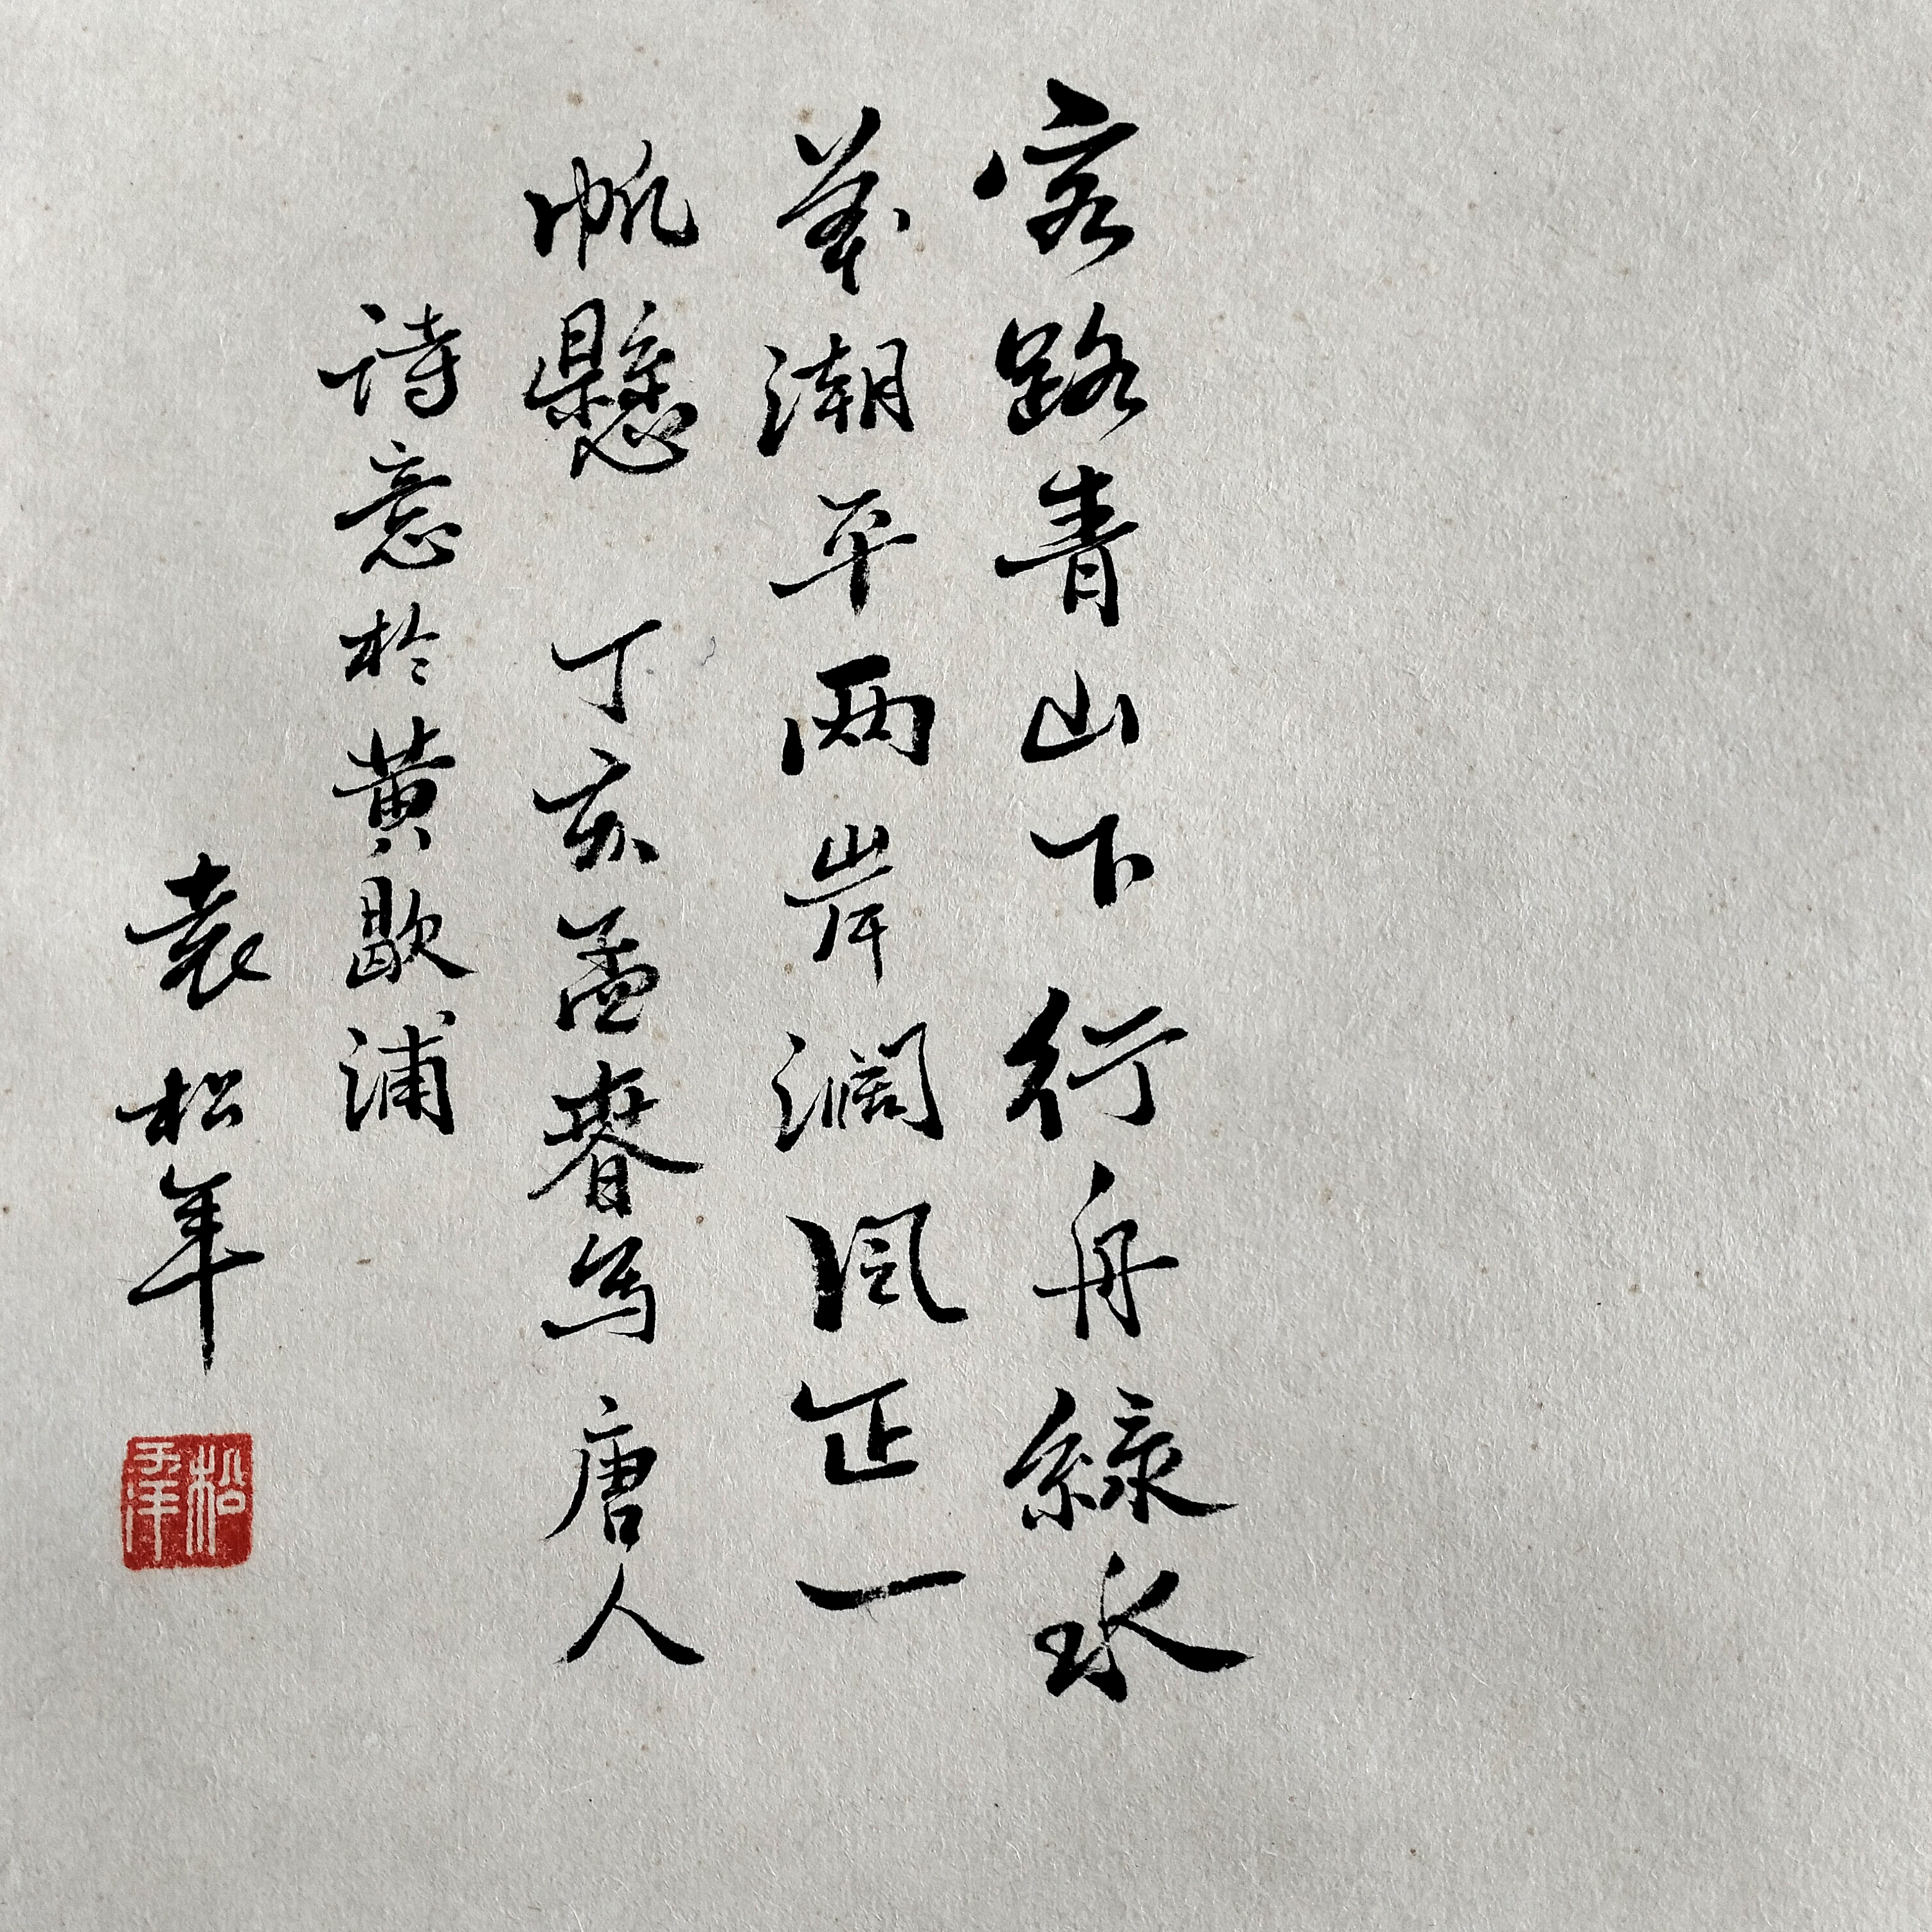 客路青山下行舟綠水
前潮平两岸濶風正一
帆懸 丁亥孟春写唐人
詩意於黃歇浦
袁松年
松年